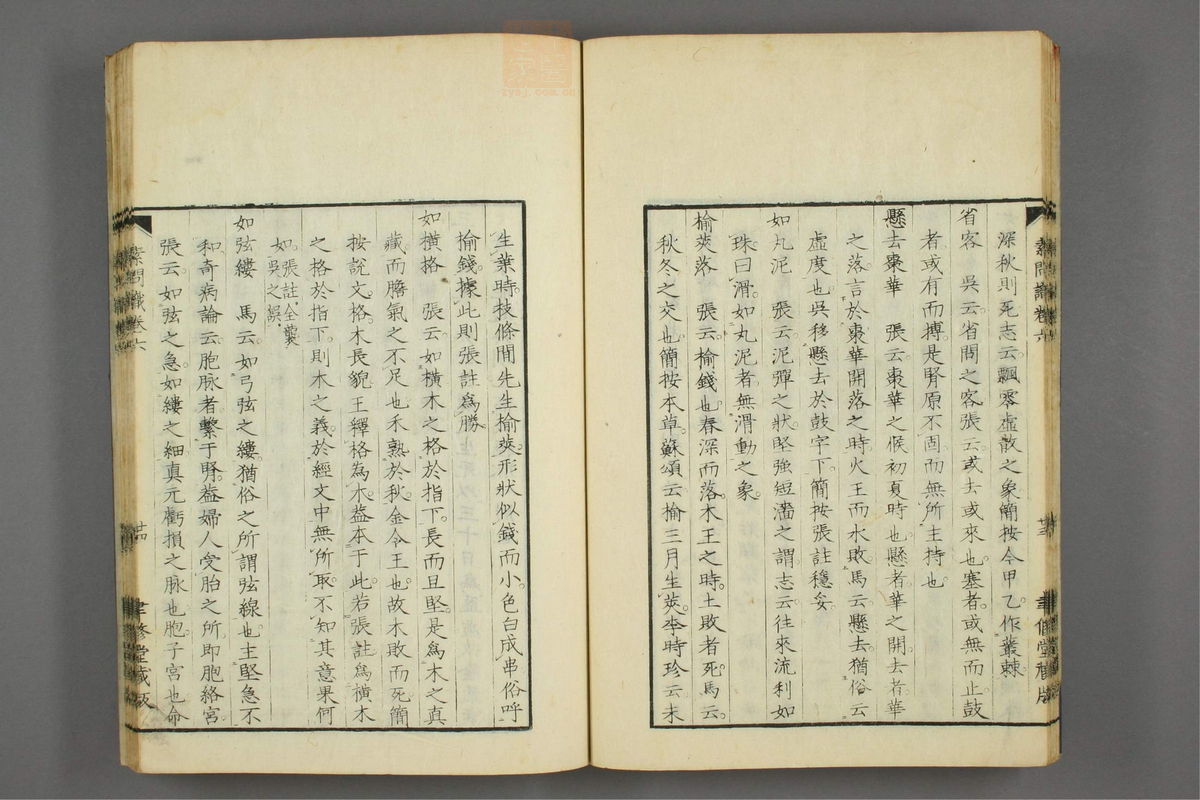 深秋則死志云飄零虛散之象簡按今甲乙作叢棘
省客 吳云省問之客張云或去或來也塞者或無而止鼓
者或有而搏是腎原不固而無所主持也
懸去棗華 張云棗華之候初夏時也懸者華之開去者華
之落言於棗華開落之時火王而水敗馬云懸去猶俗云
虛度也吳移懸去於鼓字下簡按張註穩妥
如丸泥 張云泥彈之狀堅強短濇之謂志云往來流利如
珠曰滑如丸泥者無滑動之象
榆莢落 張云榆錢也春深而落木王之時土敗者死馬云
秋冬之交也簡按本草蘇頌云榆三月生莢李時珍云未
素問識卷六
廿三
聿修堂藏版
生葉時枝條間先生榆莢形狀似錢而小色白成串俗呼
榆錢據此則張註為勝
如橫格 張云如橫木之格於指下長而且堅是為木之真
藏而膽氣之不足也禾熟於秋金令王也故木敗而死簡
按說文格木長貌王釋格為木蓋本于此若張註為橫木
之格於指下則木之義於經文中無所取不知其意果何
如張註全襲
吳之誤
如弦縷 馬云如弓弦之縷猶俗之所謂弦線也主堅急不
和奇病論云胞脉者繫于腎蓋婦人受胎之所即胞絡宮
張云如弦之急如縷之細真元虧損之脉也胞子宮也命
素問識卷六
廿四
聿修堂藏版